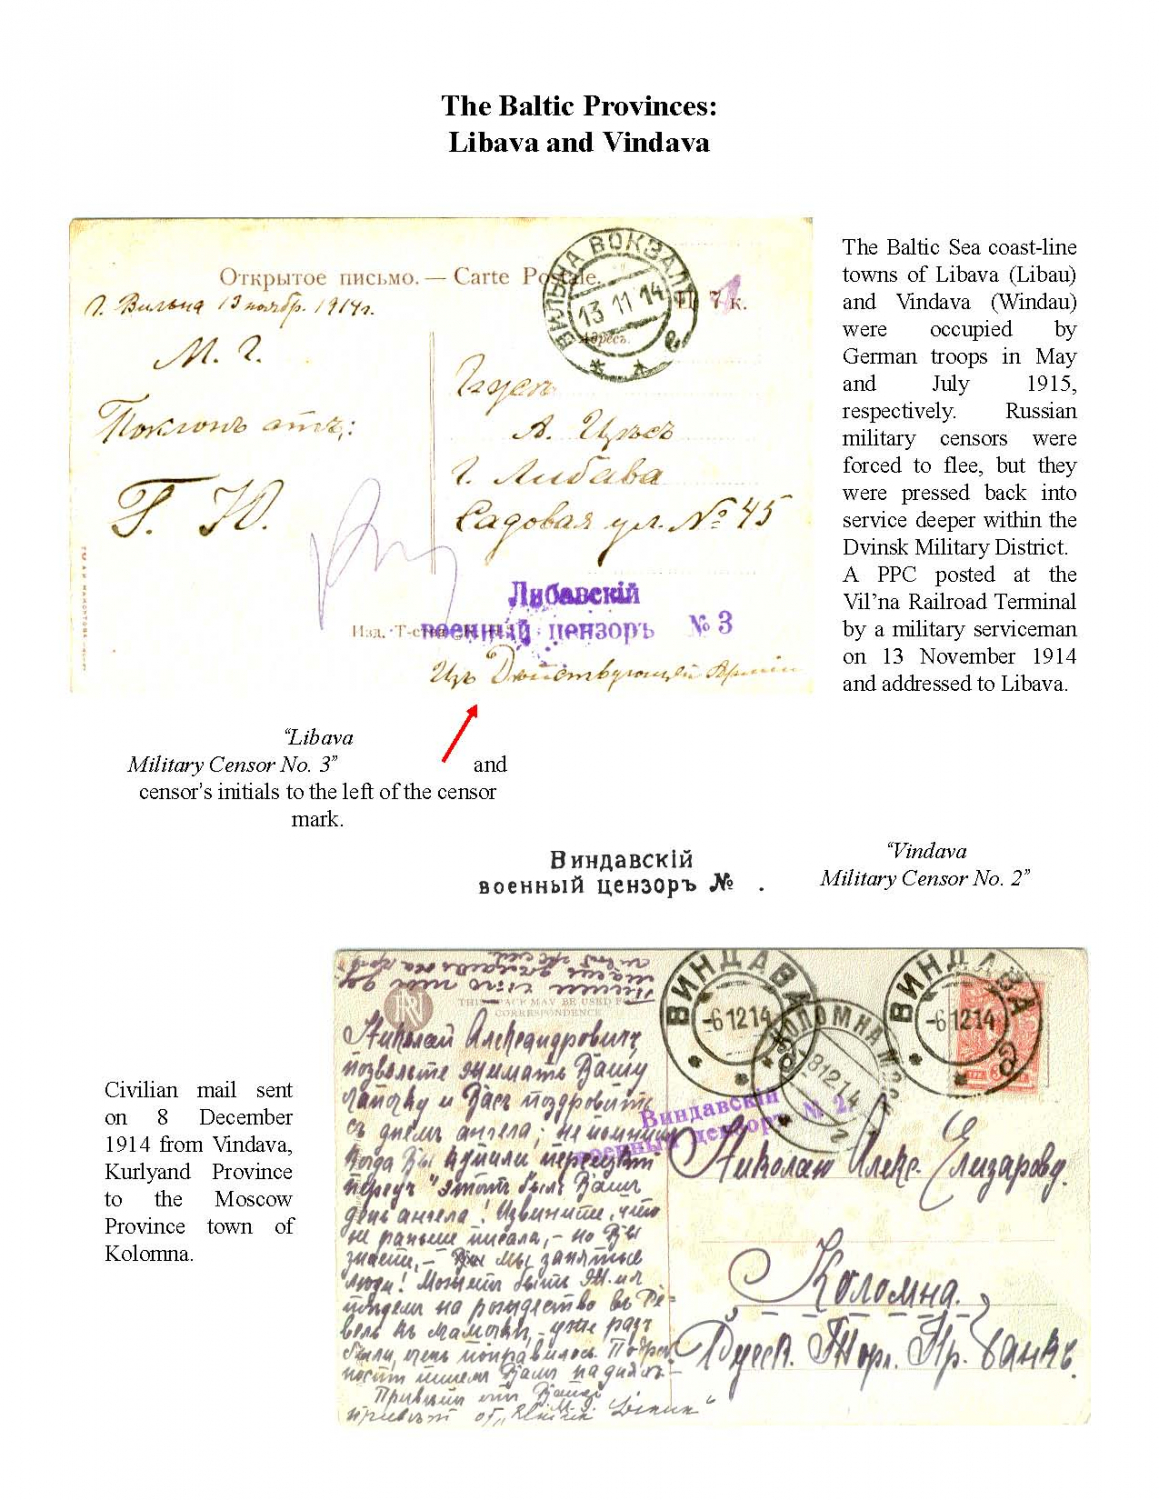 The Baltic Provinces:
Libava and Vindava
Открытое письмо. — Carte Postale.
ВИЛЬНА ВОКЗАЛЪ
13 11 14
Адресъ.
7 к.
Г. Вильна 13 ноябр. 1914г.
М. Г.
Поклонъ отъ:
Г. Ю.
А. Цѣсъ
г. Либава
Садовая ул. № 45
Либавскій
военный цензоръ № 3
Изд. Т-ства
Изъ Дѣйствующей Арміи
The Baltic Sea coast-line
towns of Libava (Libau)
and Vindava (Windau)
were occupied by
German troops in May
and July 1915,
respectively. Russian
military censors were
forced to flee, but they
were pressed back into
service deeper within the
Dvinsk Military District.
A PPC posted at the
Vil’na Railroad Terminal
by a military serviceman
on 13 November 1914
and addressed to Libava.
“Libava
Military Censor No. 3” and
censor’s initials to the left of the censor
mark.
Виндавскій
военный цензоръ № .
“Vindava
Military Censor No. 2”
Civilian mail sent
on 8 December
1914 from Vindava,
Kurlyand Province
to the Moscow
Province town of
Kolomna.
THIS SPACE MAY BE USED FOR
CORRESPONDENCE
ВИНДАВА
-6 12 14
КОЛОМНА
8 12 14
ВИНДАВА
-6 12 14
Виндавскій
военный цензоръ № 2.
Николай Александровичъ
позвольте
и Васъ поздравить
съ днемъ ангела; не
когда Вы
этотъ былъ Вашъ
день ангела! Извините, что
не раньше писала, - но Вы
знаете, - мы занятые
люди! Можетъ быть
на рождество въ Ре-
вель къ мамочкѣ, уже разъ
были, очень понравилось.
Николаю Алекс. Елизарову.
Коломна.
Русск. Торг. Пр. банкъ.